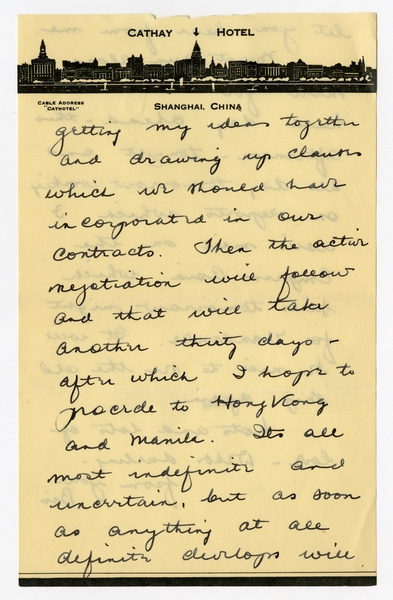 CATHAY HOTEL
CABLE ADDRESS
"CATHOTEL"
SHANGHAI, CHINA
getting my ideas together
and drawing up clauses
which we should have
incorporated in our
contracts. Then the active
negotiation will follow
and that will take
another thirty days -
after which I hope to
procede to Hong Kong
and Manila. Its all
most indefinite and
uncertain, but as soon
as anything at all
definite develops will